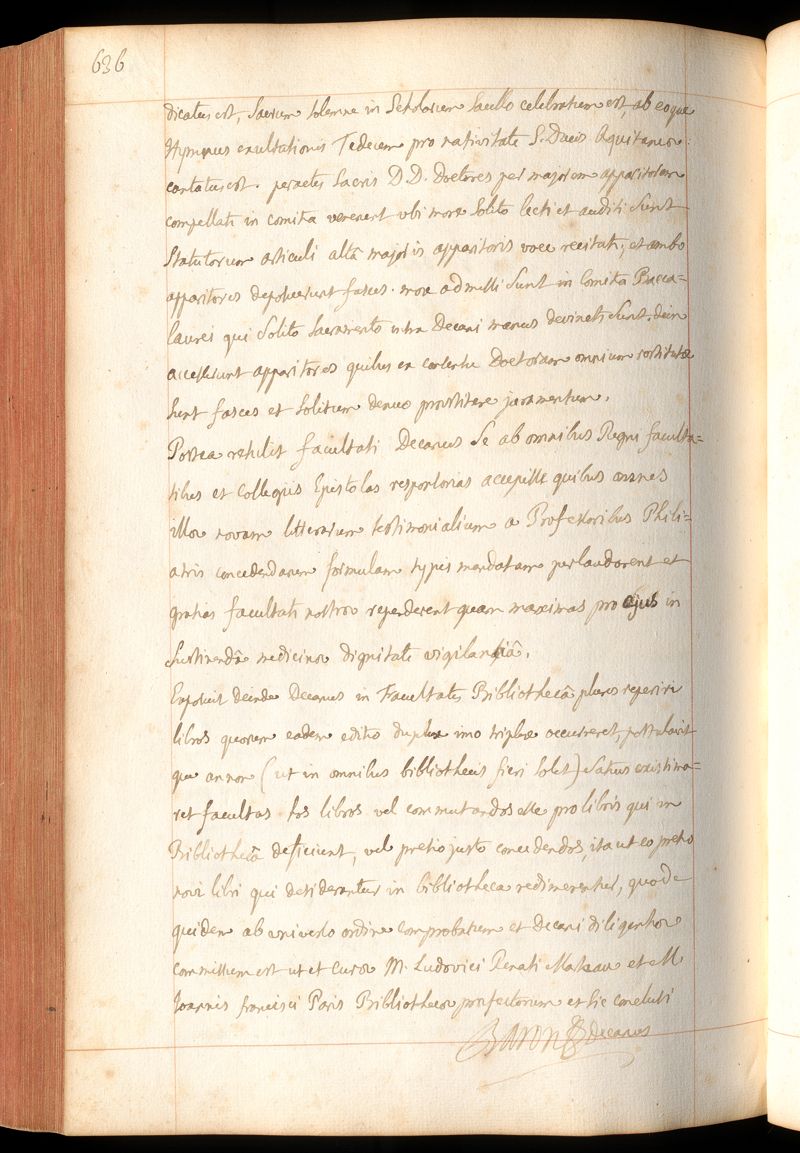 636
dicatus est, Sacrum solemne in Scholarum Sacello celebratum est, ab eoque
Hymnus exultationis Tedeum pro nativitate S. Ducis Aquitaniæ
cantatus est. peractis Sacris D.D. Doctores per majorem apparitorem
compellati in comitia venerunt ubi more Solito lecti et auditi Sunt
Statutorum articuli altâ majoris apparitoris voce recitati, et ambo
apparitores deposuerunt fasces. mox admissi Sunt in Comitia Bacca=
laurei qui Solito Sacramento intra Decani manus devincti Sunt. dein
accesserunt apparitores quibus ex consensu Doctorum omnium restitutæ
Sunt fasces et Solitum denuo præstitere juramentum.
Postea retulit facultati Decanus Se ab omnibus Regni faculta=
tibus et Collegiis Epistolas responsorias accepisse quibus omnes
illæ novam litterarum testimonialium a Professoribus Phili=
atris concedendarum formulam typis mandatam perlaudarent et
gratias facultati nostræ rependerent quam maximas pro ejus in
Sustinendâ medicinæ dignitate vigilantiâ.
Exposuit deinde Decanus in Facultatis Bibliothecâ plures reperiri
libros quorum eadem editio duplex imo triplex occurreret, postulavit
que annon (ut in omnibus bibliothecis fieri Solet) Satius existima=
ret facultas hos libros vel commutandos esse pro libris qui in
Bibliothecâ deficiunt, vel pretio justo concedendos, ita ut eo pretio
novi libri qui desiderantur in bibliotheca redimerentur, quod
quidem ab universo ordine comprobatum et Decani diligentiæ
commissum est ut et curæ M. Ludovici Renati Marteau et M
Joannis francisci Paris Bibliothecæ præfectorum et Sic conclusi
BARON decanus